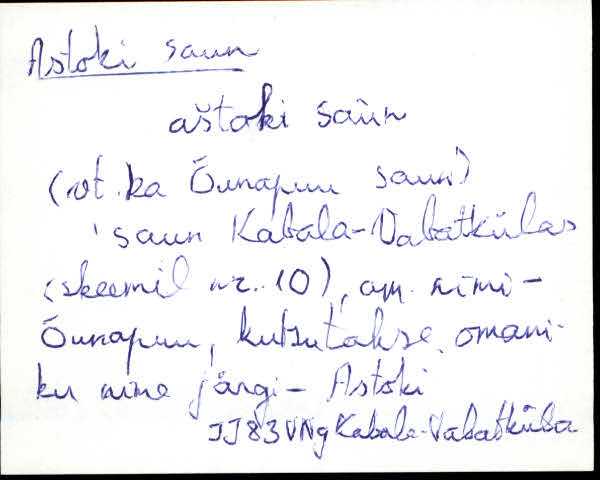 Astoki saun
aštoki saùn
(vt. ka Õunapuu saun)
'saun Kabala-Vabatkülas
(skeemil nr. 10), am. nimi-
Õunapuu, kutsutakse omani-
ku nime järgi - Astoki
JJ83 VNg Kabala-Vabatküla